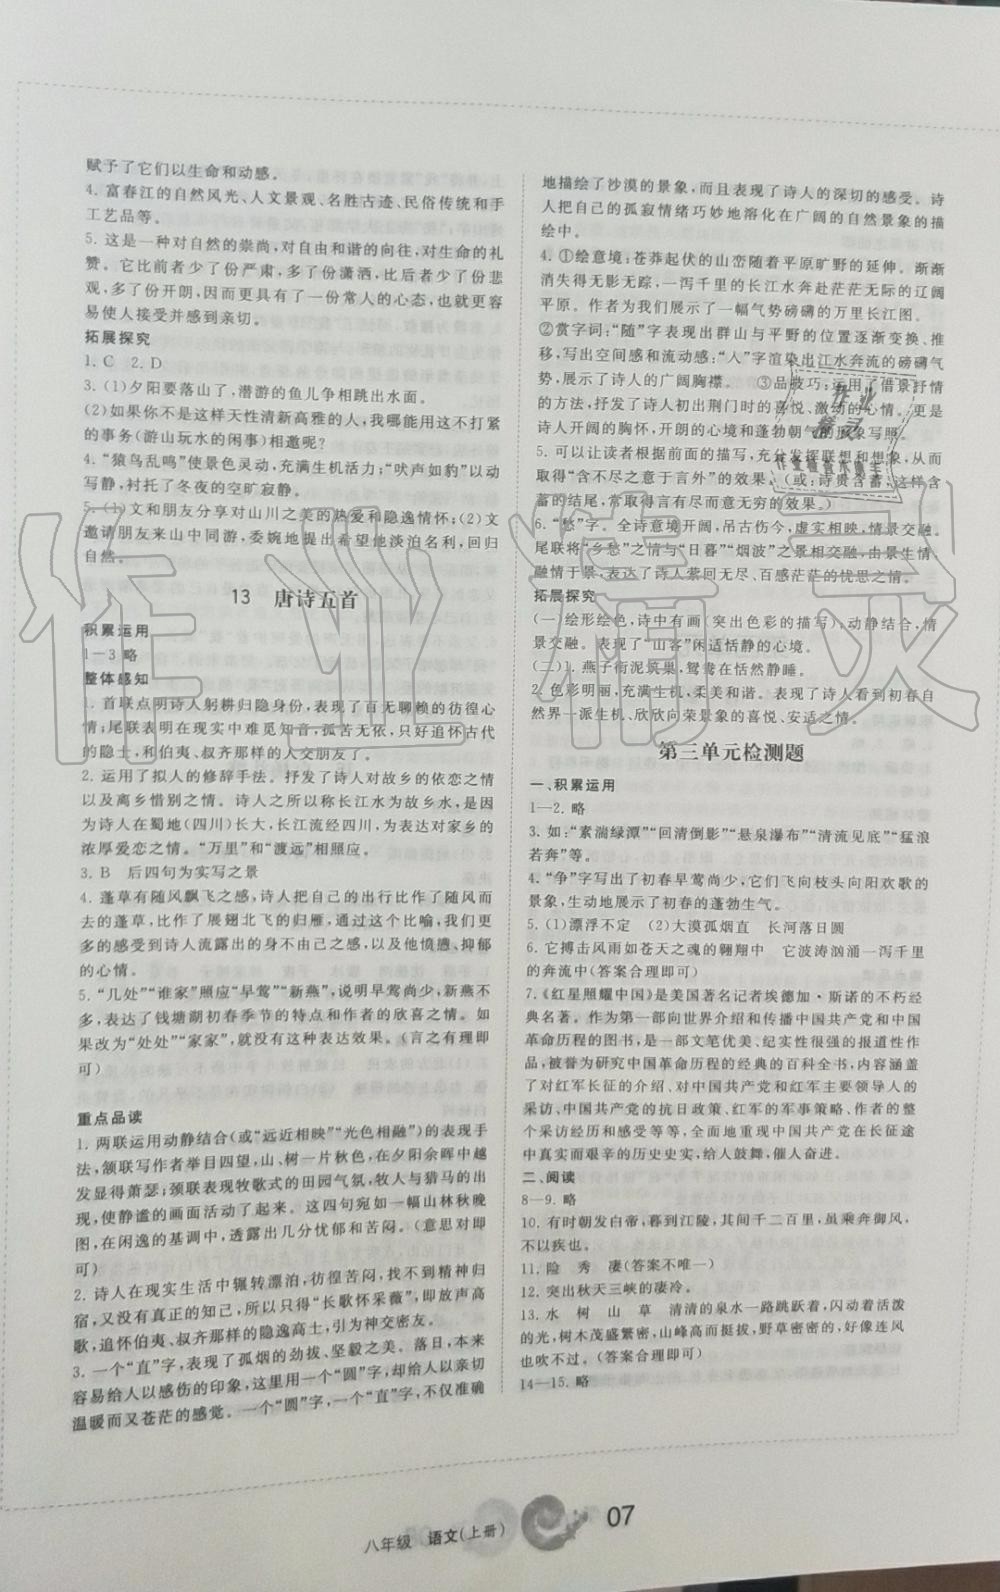 赋予了它们以生命和动感。
4. 富春江的自然风光、人文景观、名胜古迹、民俗传统和手
工艺品等。
5. 这是一种对自然的崇尚，对自由和谐的向往，对生命的礼
赞。它比前者少了份严肃，多了份潇洒，比后者少了份悲
观，多了份开朗，因而更具有了一份常人的心态，也就更容
易使人接受并感到亲切。
拓展探究
1. C　2. D
3. (1)夕阳要落山了，潜游的鱼儿争相跳出水面。
(2)如果你不是这样天性清新高雅的人，我哪能用这不打紧
的事务(游山玩水的闲事)相邀呢？
4. “猿鸟乱鸣”使景色灵动，充满生机活力；“吠声如豹”以动
写静，衬托了冬夜的空旷寂静。
5. (1)文和朋友分享对山川之美的热爱和隐逸情怀；(2)文
邀请朋友来山中同游，委婉地提出希望他淡泊名利，回归
自然。
13　唐诗五首
积累运用
1—3. 略
整体感知
1. 首联点明诗人躬耕归隐身份，表现了百无聊赖的彷徨心
情；尾联表明在现实中难觅知音，孤苦无依，只好追怀古代
的隐士，和伯夷、叔齐那样的人交朋友了。
2. 运用了拟人的修辞手法。抒发了诗人对故乡的依恋之情
以及离乡惜别之情。诗人之所以称长江水为故乡水，是
因为诗人在蜀地(四川)长大，长江流经四川，为表达对家乡的
浓厚爱恋之情。“万里”和“渡远”相照应。
3. B　后四句为实写之景
4. 蓬草有随风飘飞之感，诗人把自己的出行比作了随风而
去的蓬草，比作了展翅北飞的归雁，通过这个比喻，我们更
多的感受到诗人流露出的身不由己之感，以及他愤懑、抑郁
的心情。
5. “几处”“谁家”照应“早莺”“新燕”，说明早莺尚少，新燕不
多，表达了钱塘湖初春季节的特点和作者的欣喜之情。如
果改为“处处”“家家”，就没有这种表达效果。(言之有理即
可)
重点品读
1. 两联运用动静结合(或“远近相映”“光色相融”)的表现手
法，颔联写作者举目四望，山、树一片秋色，在夕阳余晖中越
发显得萧瑟；颈联表现牧歌式的田园气氛，牧人与猎马的出
现，使静谧的画面活动了起来。这四句宛如一幅山林秋晚
图，在闲逸的基调中，透露出几分忧郁和苦闷。(意思对即
可)
2. 诗人在现实生活中辗转漂泊，彷徨苦闷，找不到精神归
宿，又没有真正的知己，所以只得“长歌怀采薇”，即放声高
歌，追怀伯夷、叔齐那样的隐逸高士，引为神交密友。
3. 一个“直”字，表现了孤烟的劲拔、坚毅之美。落日，本来
容易给人以感伤的印象，这里用一个“圆”字，却给人以亲切
温暖而又苍茫的感觉。一个“圆”字，一个“直”字，不仅准确
地描绘了沙漠的景象，而且表现了诗人的深切的感受。诗
人把自己的孤寂情绪巧妙地溶化在广阔的自然景象的描
绘中。
4. ①绘意境：苍莽起伏的山峦随着平原旷野的延伸。渐渐
消失得无影无踪，一泻千里的长江水奔赴茫茫无际的辽阔
平原。作者为我们展示了一幅气势磅礴的万里长江图。
②赏字词：“随”字表现出群山与平野的位置逐渐变换、推
移，写出空间感和流动感；“入”字渲染出江水奔流的磅礴气
势，展示了诗人的广阔胸襟。　③品技巧：运用了借景抒情
的方法，抒发了诗人初出荆门时的喜悦、激动的心情。更是
诗人开阔的胸怀，开朗的心境和蓬勃朝气的形象写照。
5. 可以让读者根据前面的描写，充分发挥联想和想象，从而
取得“含不尽之意于言外”的效果。(或：诗贵含蓄；这样含
蓄的结尾，常取得言有尽而意无穷的效果。)
6. “愁”字。全诗意境开阔，吊古伤今，虚实相映，情景交融。
尾联将“乡愁”之情与“日暮”“烟波”之景相交融，由景生情
融情于景，表达了诗人萦回无尽、百感茫茫的忧思之情。
拓展探究
(一)绘形绘色，诗中有画(突出色彩的描写)，动静结合，情
景交融。表现了“山客”闲适恬静的心境。
(二)1. 燕子衔泥筑巢，鸳鸯在恬然静睡。
2. 色彩明丽，充满生机，柔美和谐。表现了诗人看到初春自
然界一派生机、欣欣向荣景象的喜悦、安适之情。
第三单元检测题
一、积累运用
1—2. 略
3. 如：“素湍绿潭”“回清倒影”“悬泉瀑布”“清流见底”“猛浪
若奔”等。
4. “争”字写出了初春早莺尚少，它们飞向枝头向阳欢歌的
景象，生动地展示了初春的蓬勃生气。
5. (1)漂浮不定　(2)大漠孤烟直　长河落日圆
6. 它搏击风雨如苍天之魂的翱翔中　它波涛汹涌一泻千里
的奔流中(答案合理即可)
7. 《红星照耀中国》是美国著名记者埃德加·斯诺的不朽经
典名著。作为第一部向世界介绍和传播中国共产党和中国
革命历程的图书，是一部文笔优美、纪实性很强的报道性作
品，被誉为研究中国革命历程的经典的百科全书，内容涵盖
了对红军长征的介绍、对中国共产党和红军主要领导人的
采访、中国共产党的抗日政策、红军的军事策略、作者的整
个采访经历和感受等等，全面地重现中国共产党在长征途
中真实而艰辛的历史史实，给人鼓舞，催人奋进。
二、阅读
8—9. 略
10. 有时朝发白帝，暮到江陵，其间千二百里，虽乘奔御风，
不以疾也。
11. 险　秀　凄(答案不唯一)
12. 突出秋天三峡的凄冷。
13. 水　树　山　草　清清的泉水一路跳跃着，闪动着活泼
的光，树木茂盛繁密，山峰高而挺拔，野草密密的，好像连风
也吹不过。(答案合理即可)
14—15. 略
八年级　语文(上册)
07
作业精灵